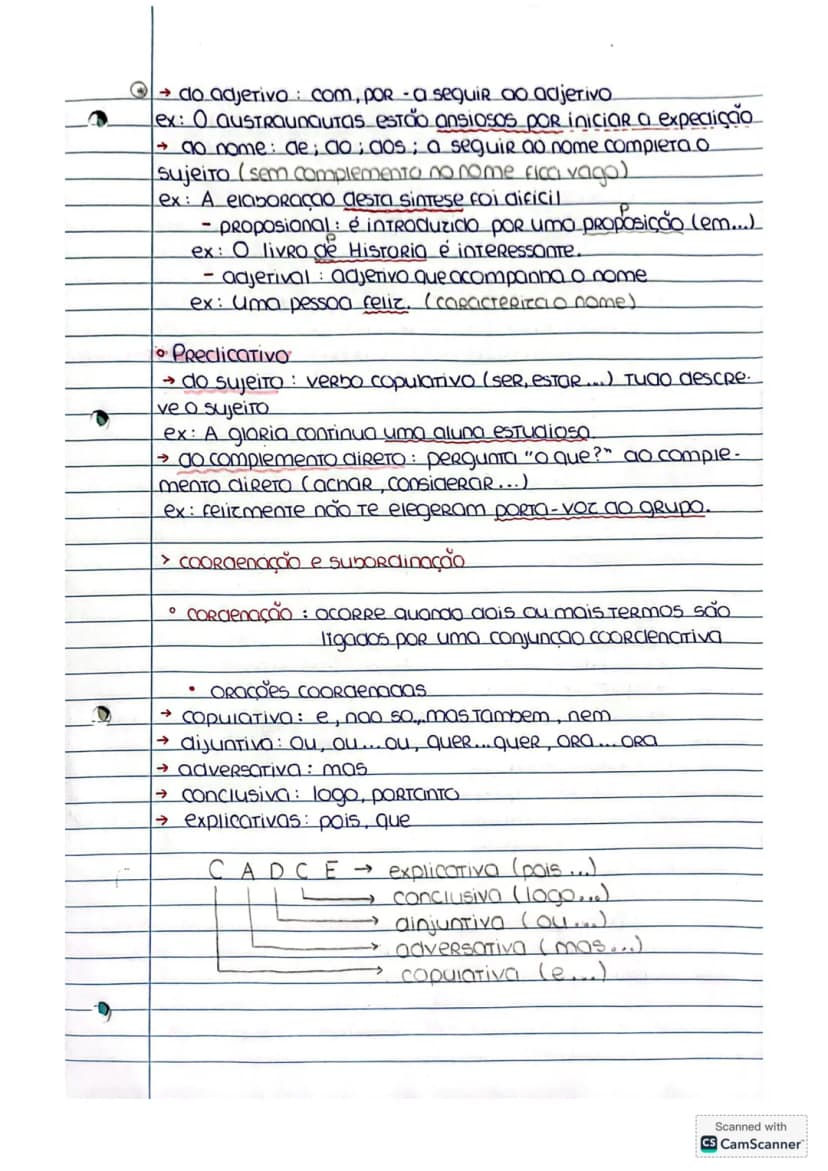 → do adjetivo : com, por - a seguir ao adjetivo
ex: O austraunautas estão ansiosos por iniciar a expedição
→ do nome: de; do; dos; a seguir ao nome completa o
sujeito (sem complemento no nome fica vago)
ex: A elaboração desta sintese foi dificil
- proposional: é introduzido por uma proposição (em...)
p
ex: O livro de Historia é interessante.
p
- adjetival : adjetivo que acompanha o nome
ex: Uma pessoa feliz. (caracteriza o nome)
Predicativo
→ do sujeito : verbo copulativo (ser, estar ...) tudo descre-
ve o sujeito
ex: A gloria continua uma aluna estudiosa
→ do complemento direto : pergunta "o que?" ao comple-
mento direto (achar, considerar ...)
ex: felizmente não te elegeram porta-voz do grupo.
> coordenação e subordinação
° cordenação : ocorre quando dois ou mais termos são
ligados por uma conjunção coordenativa
• orações coordenadas
→ copulativa: e, nao so,, mas tambem, nem
→ dijuntiva: ou, ou...ou, quer...quer, ora...ora
→ adversativa: mas
→ conclusiva: logo, portanto
→ explicativas: pois, que
C A D C E → explicativa (pois ...)
→ conclusiva (logo...)
→ dinjuntiva (ou...)
→ adversativa (mas...)
→ copulativa (e...)
Scanned with
CS CamScanner